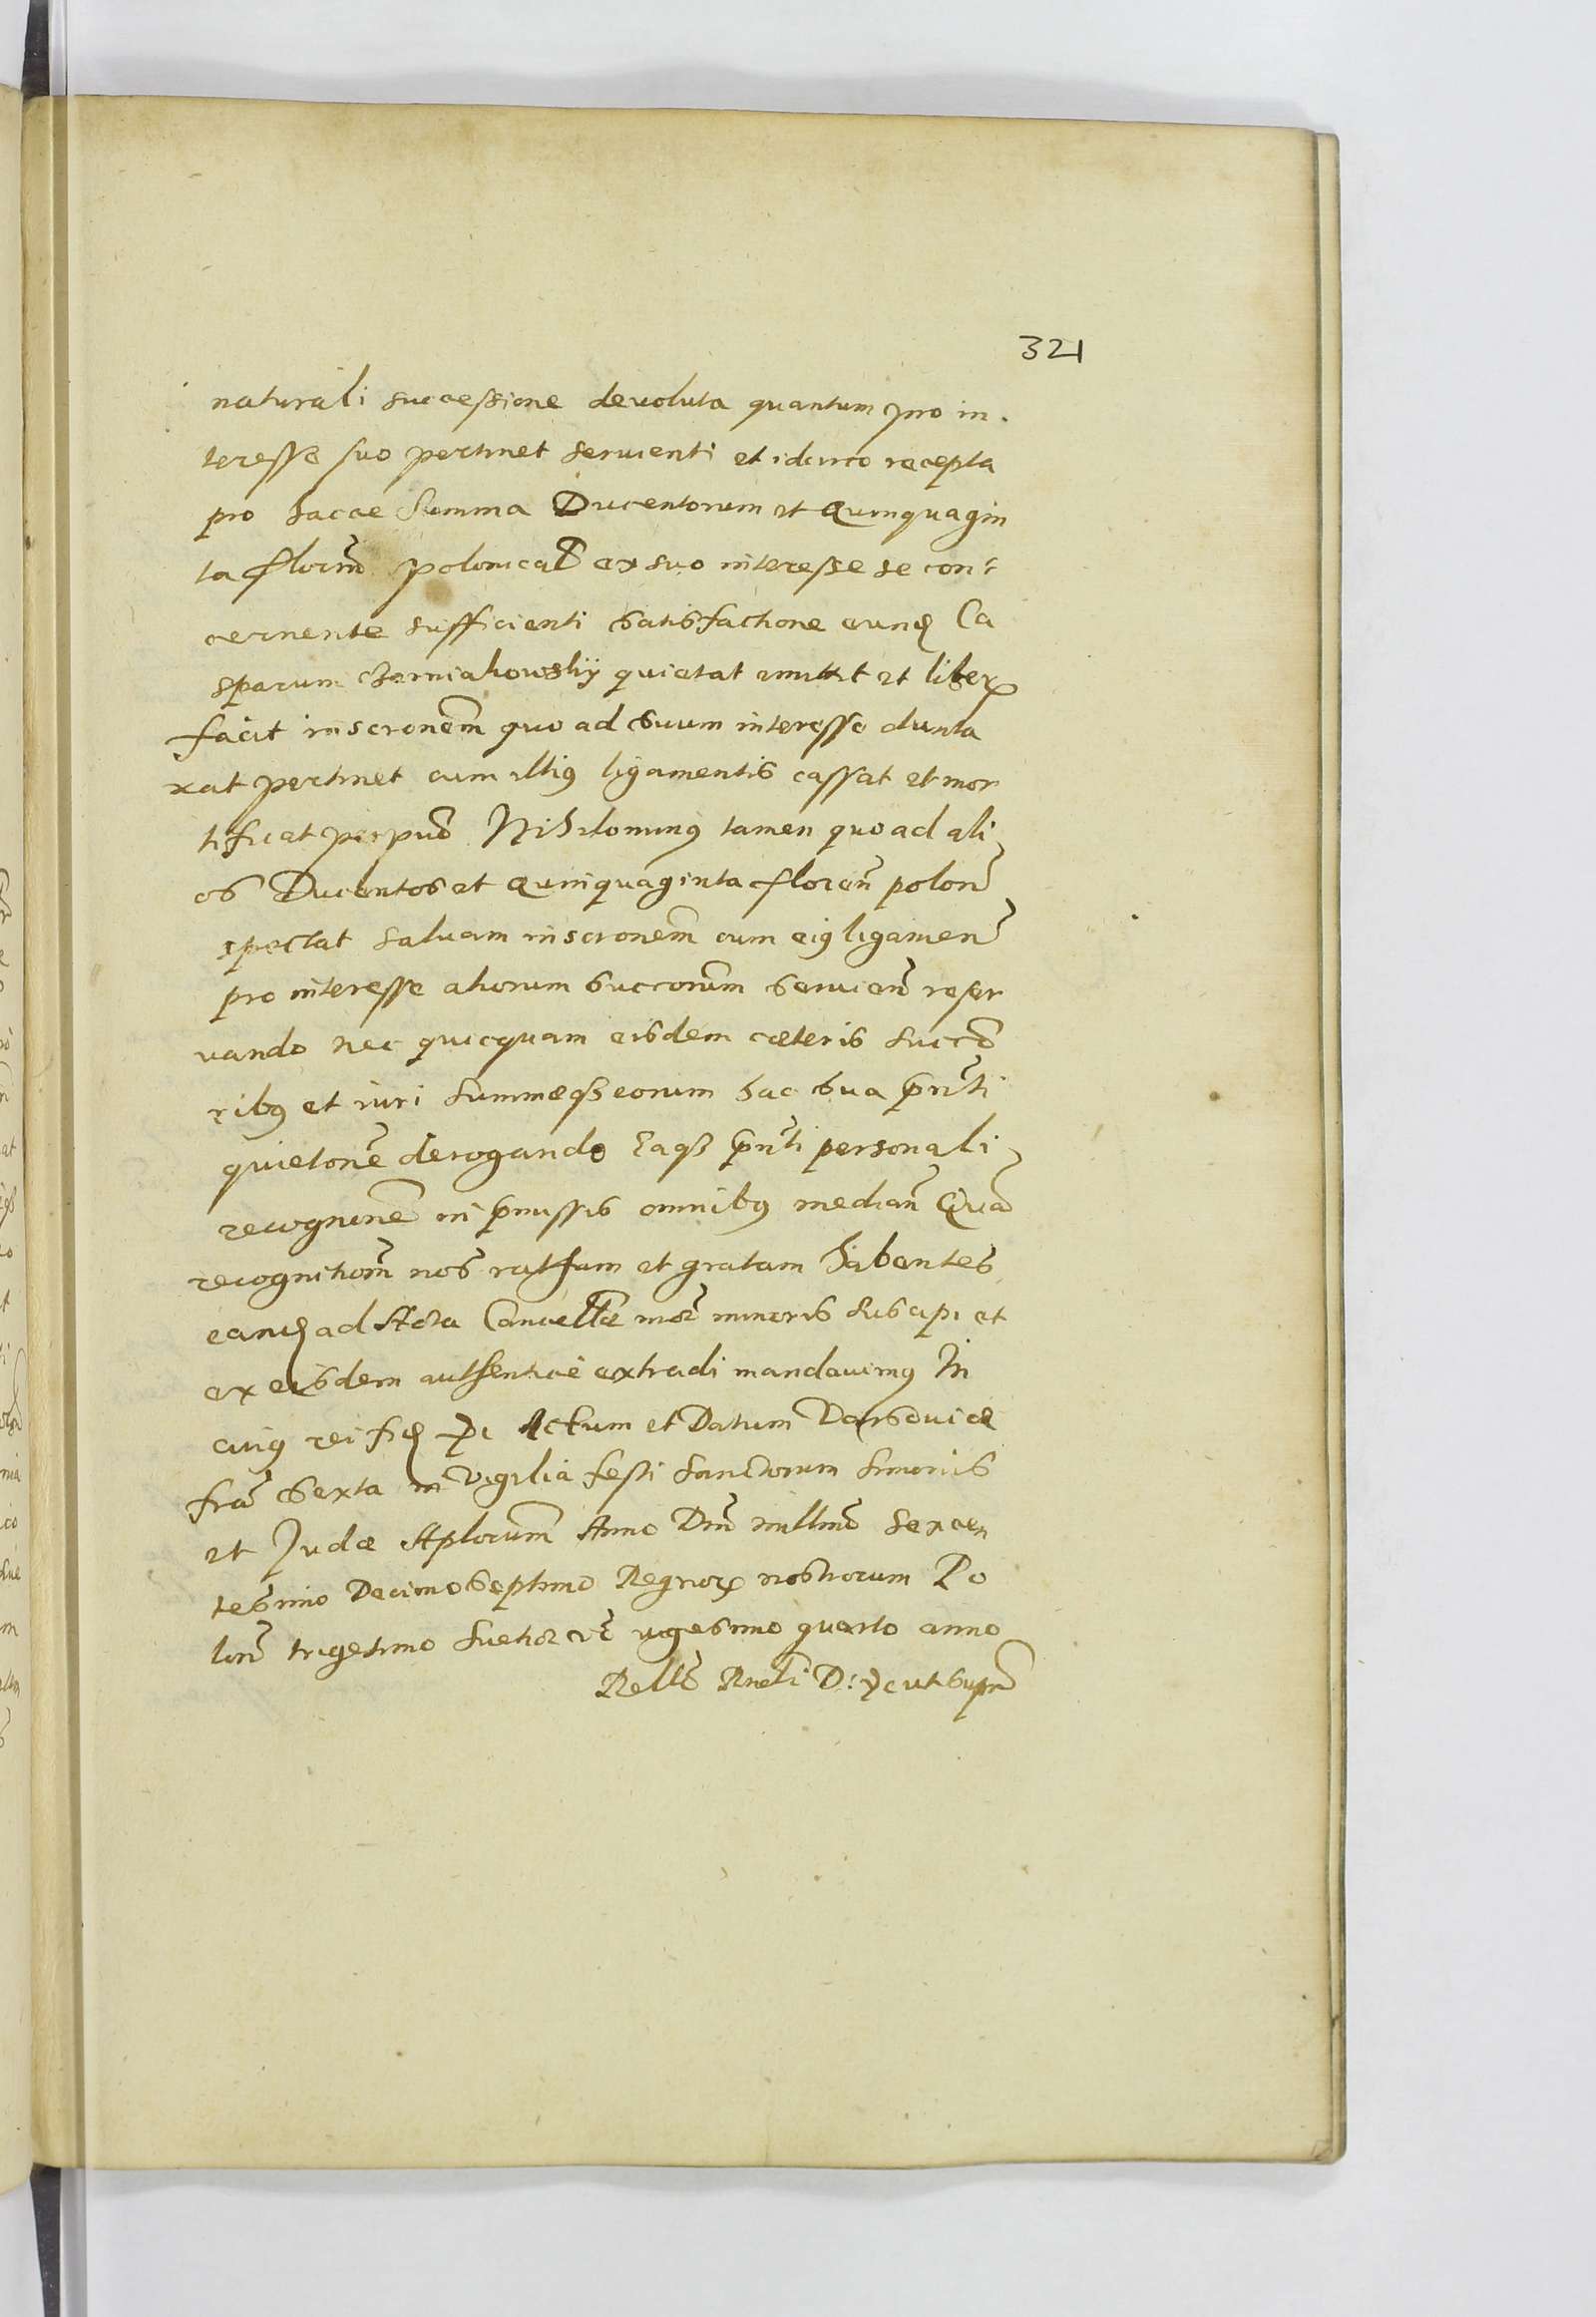 321
naturali successione devoluta quantum pro in.
teresse suo pertinet servienti et idcirco recepta
pro hacce Summa Ducentorum et Quinquagin
ta floren̄ polonical ex suo interesse se con
cernente sufficienti satisfactione eund Ca
sparum Czerniakowskÿ quietat emittit et liber
facit inscronem̄ quo ad suum interesse dunta
xat pertinet cum illiꝰ ligamentis cassat et mor
tificat perpuō Nihilominꝰ tamen quo ad ali
os Ducentos et Quinquaginta floren̄ polon̄
spectat salvam inscronem̄ cum eiꝰ ligamen̄
pro interesse aliorum succorum̄ servien̄ reser
vando nec quicquam eisdem cæteris Succō
ribꝰ et iuri Summæqꝫ eorum hac sua pn̄ti
quietone̅ derogando Eaqꝫ pn̄ti personali
recognine̅ in pmissis omnibꝰ median̄ Quā
recognitiom̄ nos̄ rattam et gratam habentes
eand ad Acta Cancell̄æ nr̄æ minoris suscipi et
ex eisdem authentice extradi mandavimꝰ In
cuiꝰ rei fid etc Actum et Datum Varsoviæ
fr̄a sexta in Vigilia festi Sanctorum Simonis
et Judæ Aplorum̄ Anno Dn̄i millmō Sexcen
tesimo Decimo Septimo Regnorꝝ nostrorum Po
lon̄ trigesimo Suetiæ v̄o vigesimo quarto anno
Rell̄o Rneli D: etc ut suprā